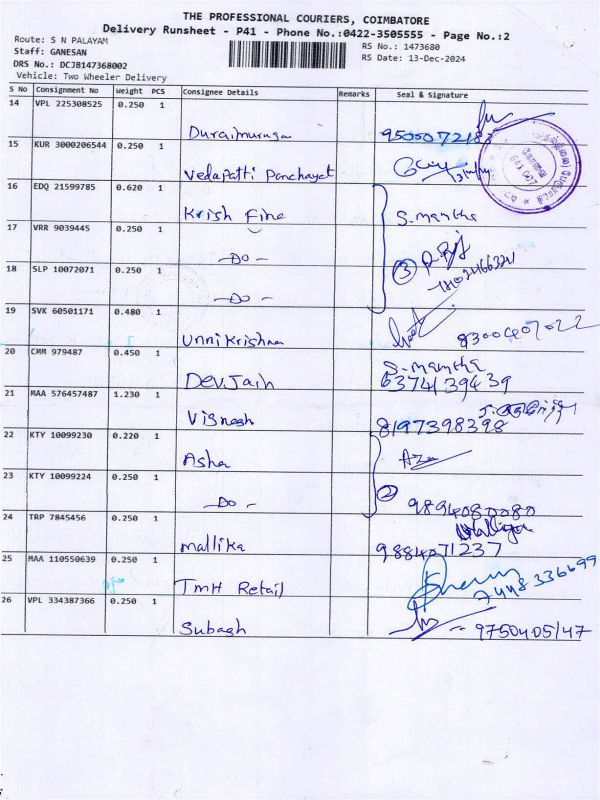 THE PROFESSIONAL COURIERS, COIMBATORE
Delivery Runsheet - P41 - Phone No.:0422-3505555 - Page No.:2
Route: S N PALAYAM
Staff: GANESAN
DRS No.: DCJB147368002
Vehicle: Two Wheeler Delivery
RS No.: 1473680
RS Date: 13-Dec-2024
S No Consignment No Weight PCS Consignee Details Remarks Seal & Signature
14 VPL 225308525 0.250 1
Duraimuruga
15 KUR 3000206544 0.250 1
Vedapatti Panchayat
16 EDQ 21599785 0.620 1
Krish Fine S.mamtha
17 VRR 9039445 0.250 1
-Do-
18 SLP 10072071 0.250 1 3
-Do-
19 SVK 60501171 0.480 1
Unnikrishna 8300407022
20 CMM 979487 0.450 1 S.mamtha
DevJain 6374139439
21 MAA 576457487 1.230 1
Vignesh 8197398398
22 KTY 10099230 0.220 1
Asha
23 KTY 10099224 0.250 1 2
-Do- 9894080080
24 TRP 7845456 0.250 1
mallika 9884071237
25 MAA 110550639 0.250 1
TMH Retail 7448336699
26 VPL 334387366 0.250 1
Subash